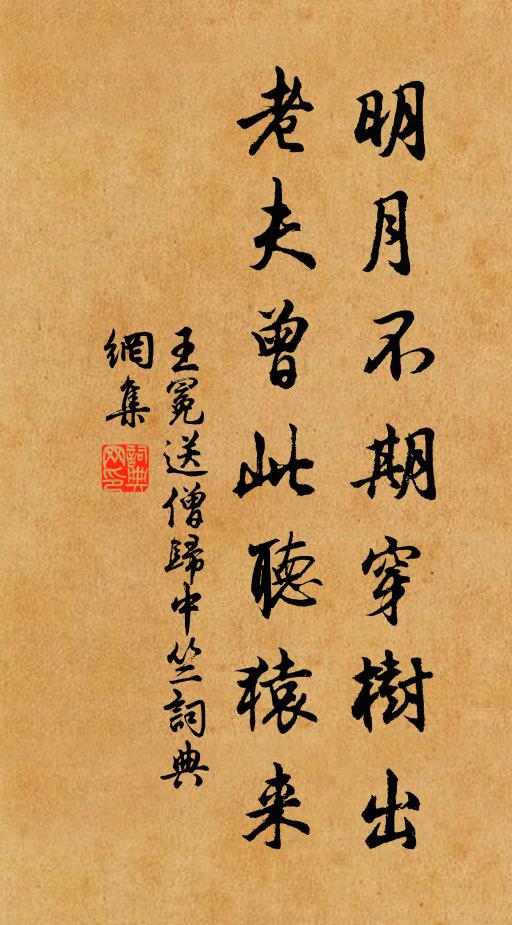 明月不期穿樹出
老夫曾此聽猿来
王冕送僧歸中竺詞典
網集
詞典網印